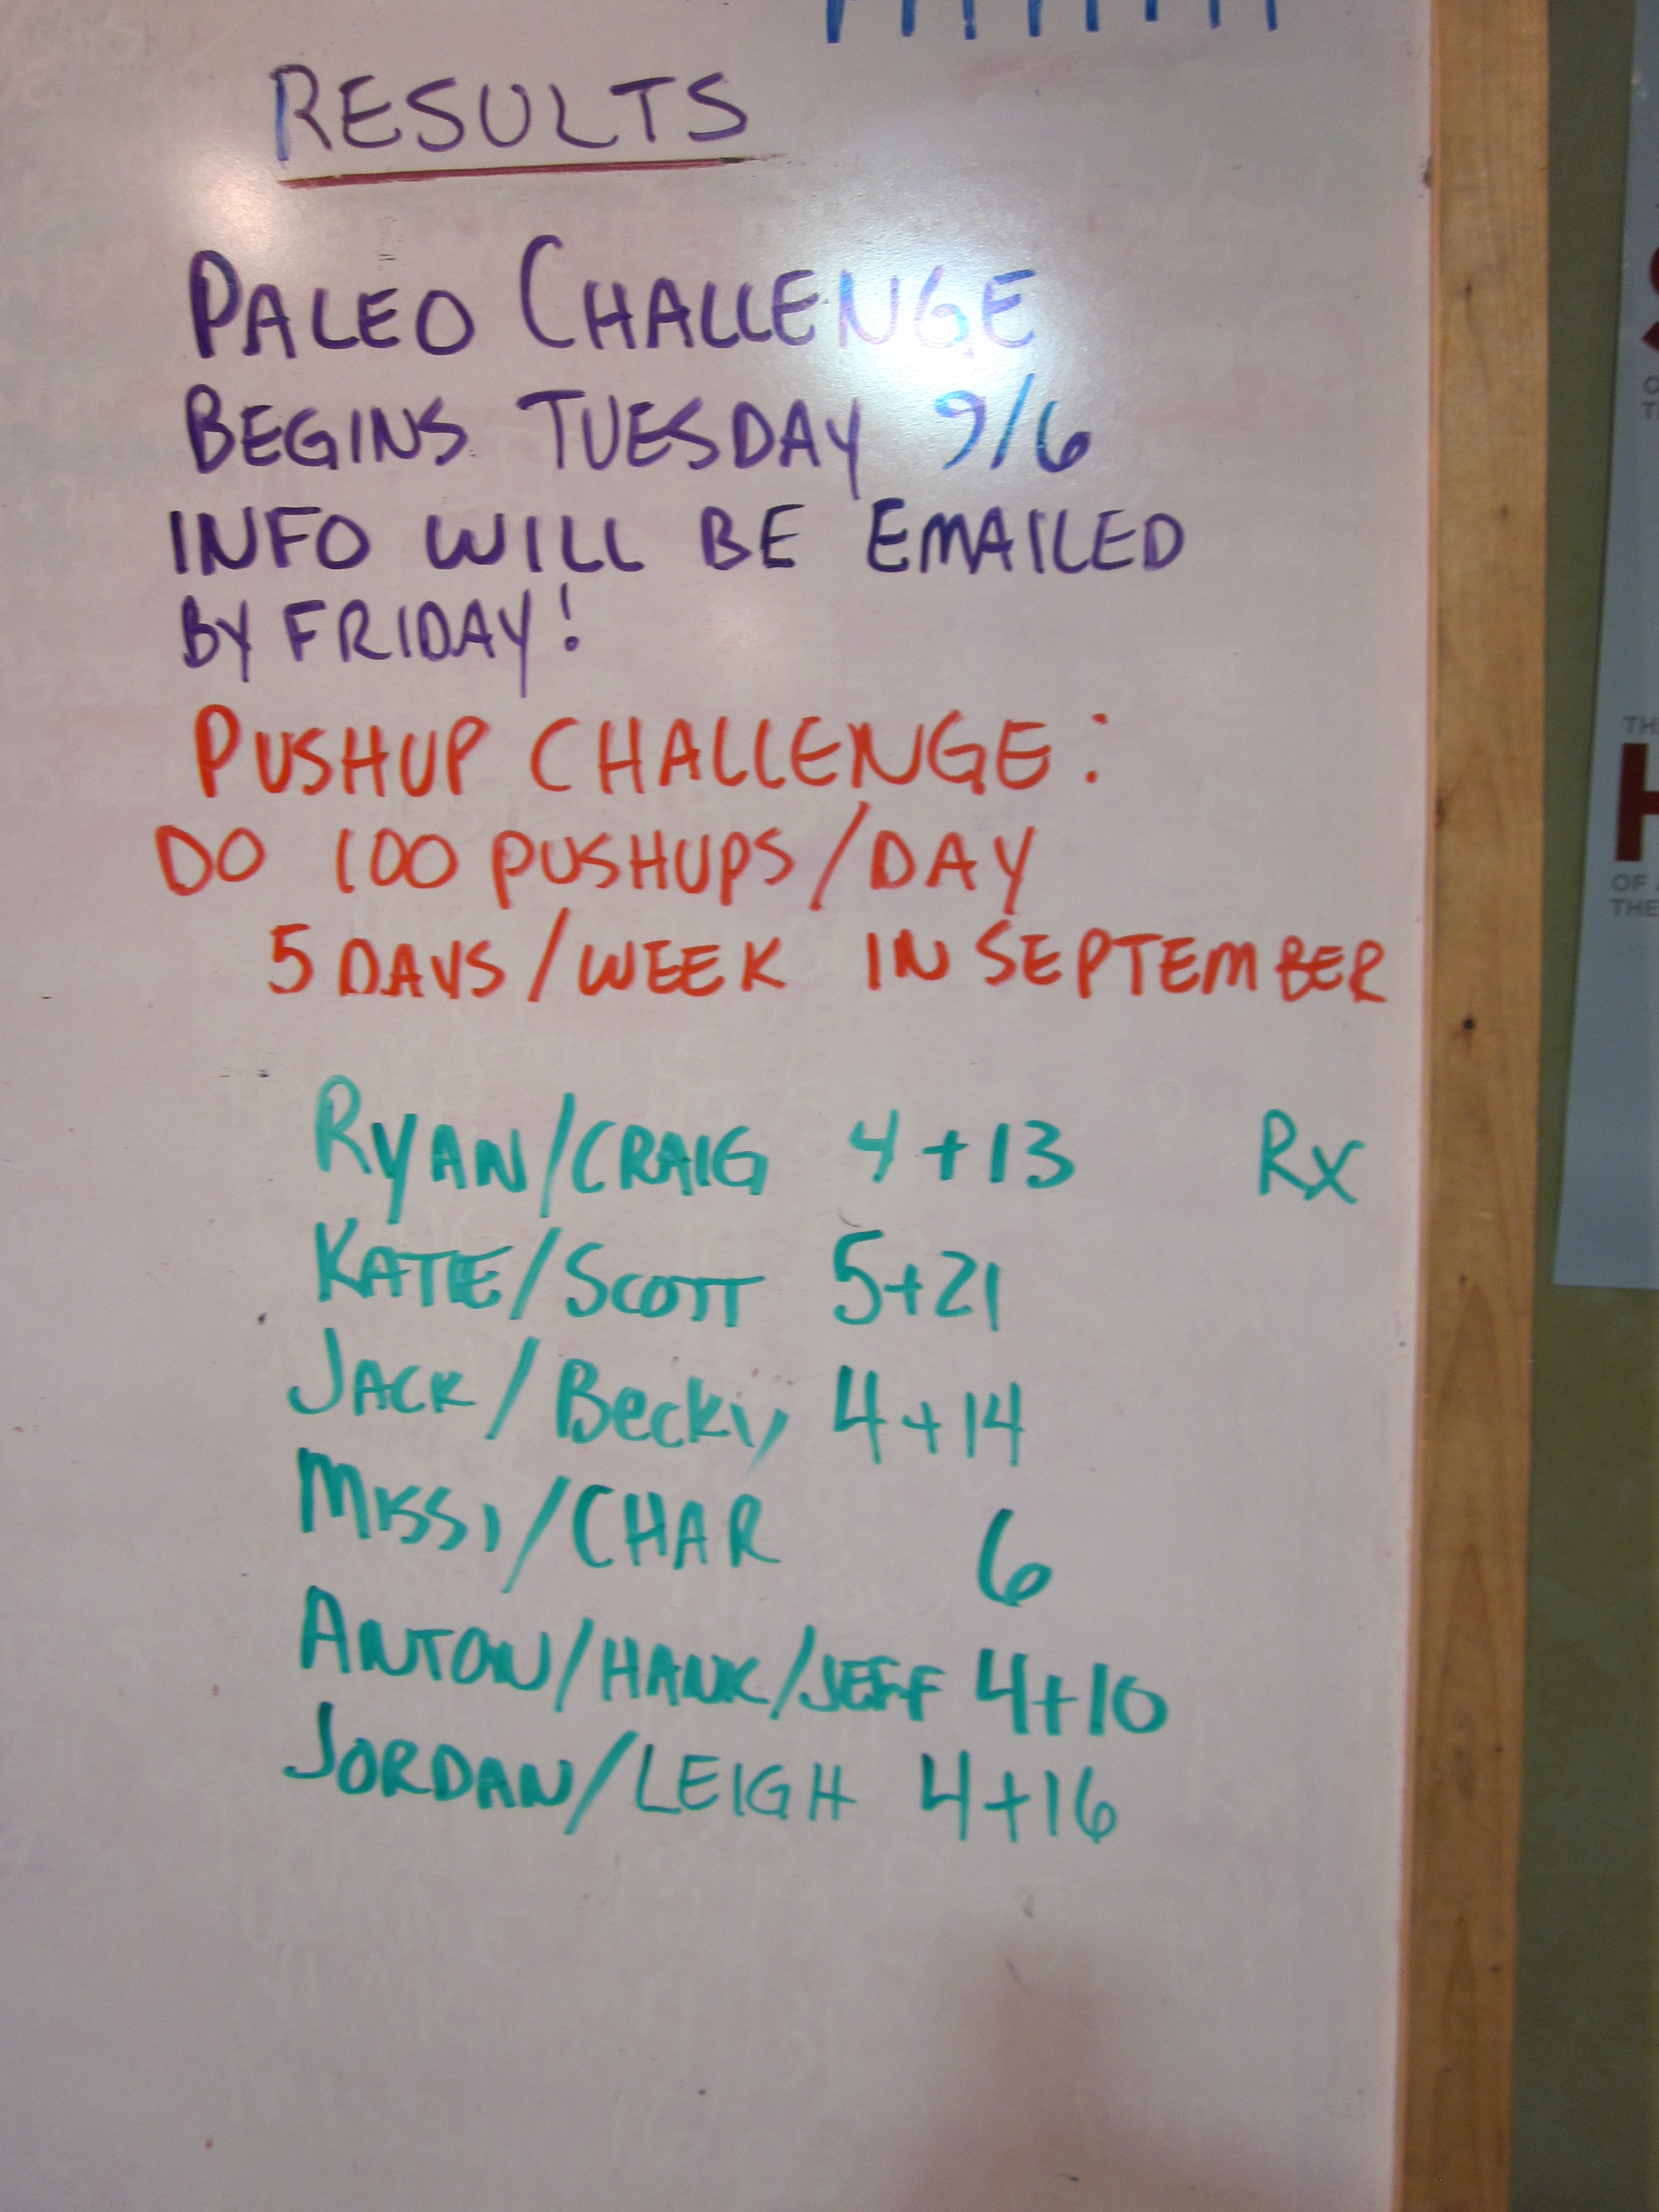 RESULTS
PALEO CHALLENGE
BEGINS TUESDAY 9/6
INFO WILL BE EMAILED
BY FRIDAY!
PUSHUP CHALLENGE:
DO 100 PUSHUPS/DAY
5 DAYS/WEEK IN SEPTEMBER
RYAN/CRAIG 4+13 Rx
KATIE/SCOTT 5+21
JACK/Becky 4+14
MISSI/CHAR 6
ANTON/HANK/JEFF 4+10
JORDAN/LEIGH 4+16
H
OF
THE